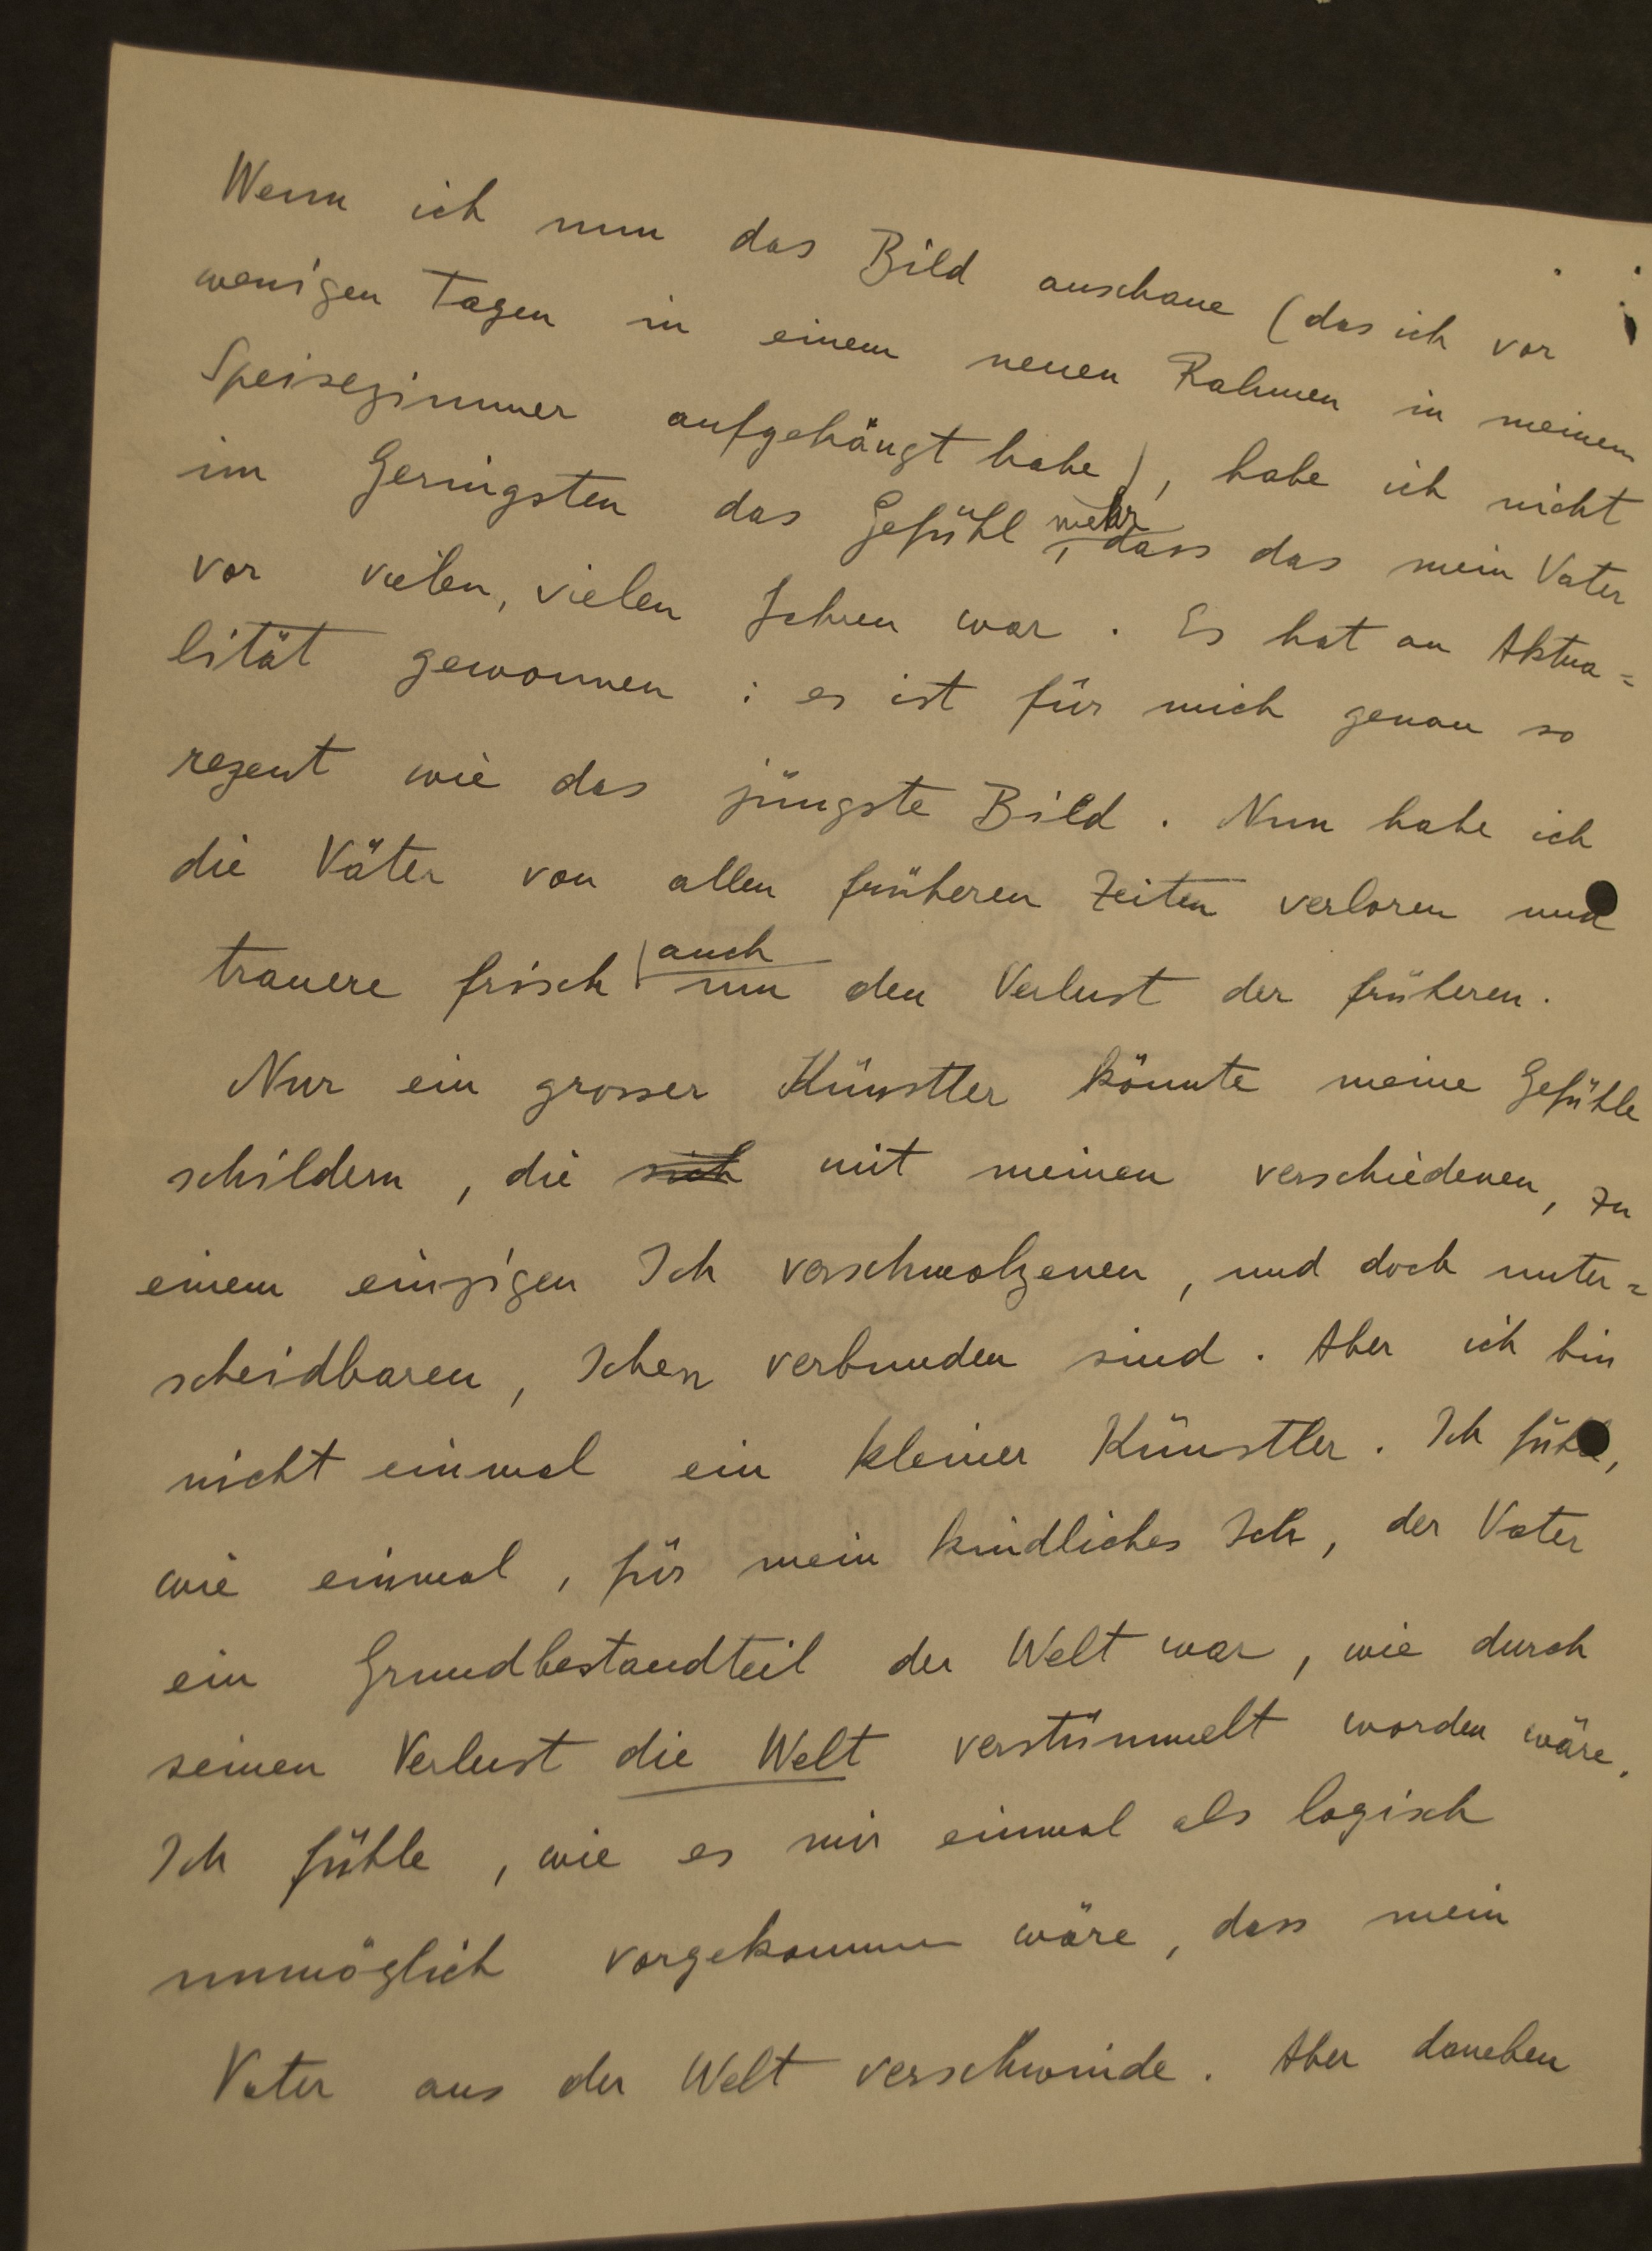 Wenn ich nun das Bild anschaue (das ich vor
wenigen Tagen in einem neuen Rahmen in meinem
Speisezimmer aufgehängt habe), habe ich nicht
im Geringsten das Gefühl mehr, dass das mein Vater
vor vielen, vielen Jahren war. Es hat an Aktua=
lität gewonnen: es ist für mich genau so
rezent wie das jüngste Bild. Nun habe ich
die Väter von allen früheren Zeiten verloren und
trauere frisch auch um den Verlust der früheren.
Nur ein grosser Künstler könnte meine Gefühle
schildern, die sich mit meinen verschiedenen, zu
einem einzigen Ich verschmolzenen, und doch unter=
scheidbaren, Ichen verbunden sind. Aber ich bin
nicht einmal ein kleiner Künstler. Ich fühle,
wie einmal, für mein kindliches Ich, der Vater
ein Grundbestandteil der Welt war, wie durch
seinen Verlust die Welt verstümmelt worden wäre.
Ich fühle, wie es mir einmal als logisch
unmöglich vorgekommen wäre, dass mein
Vater aus der Welt verschwinde. Aber daneben